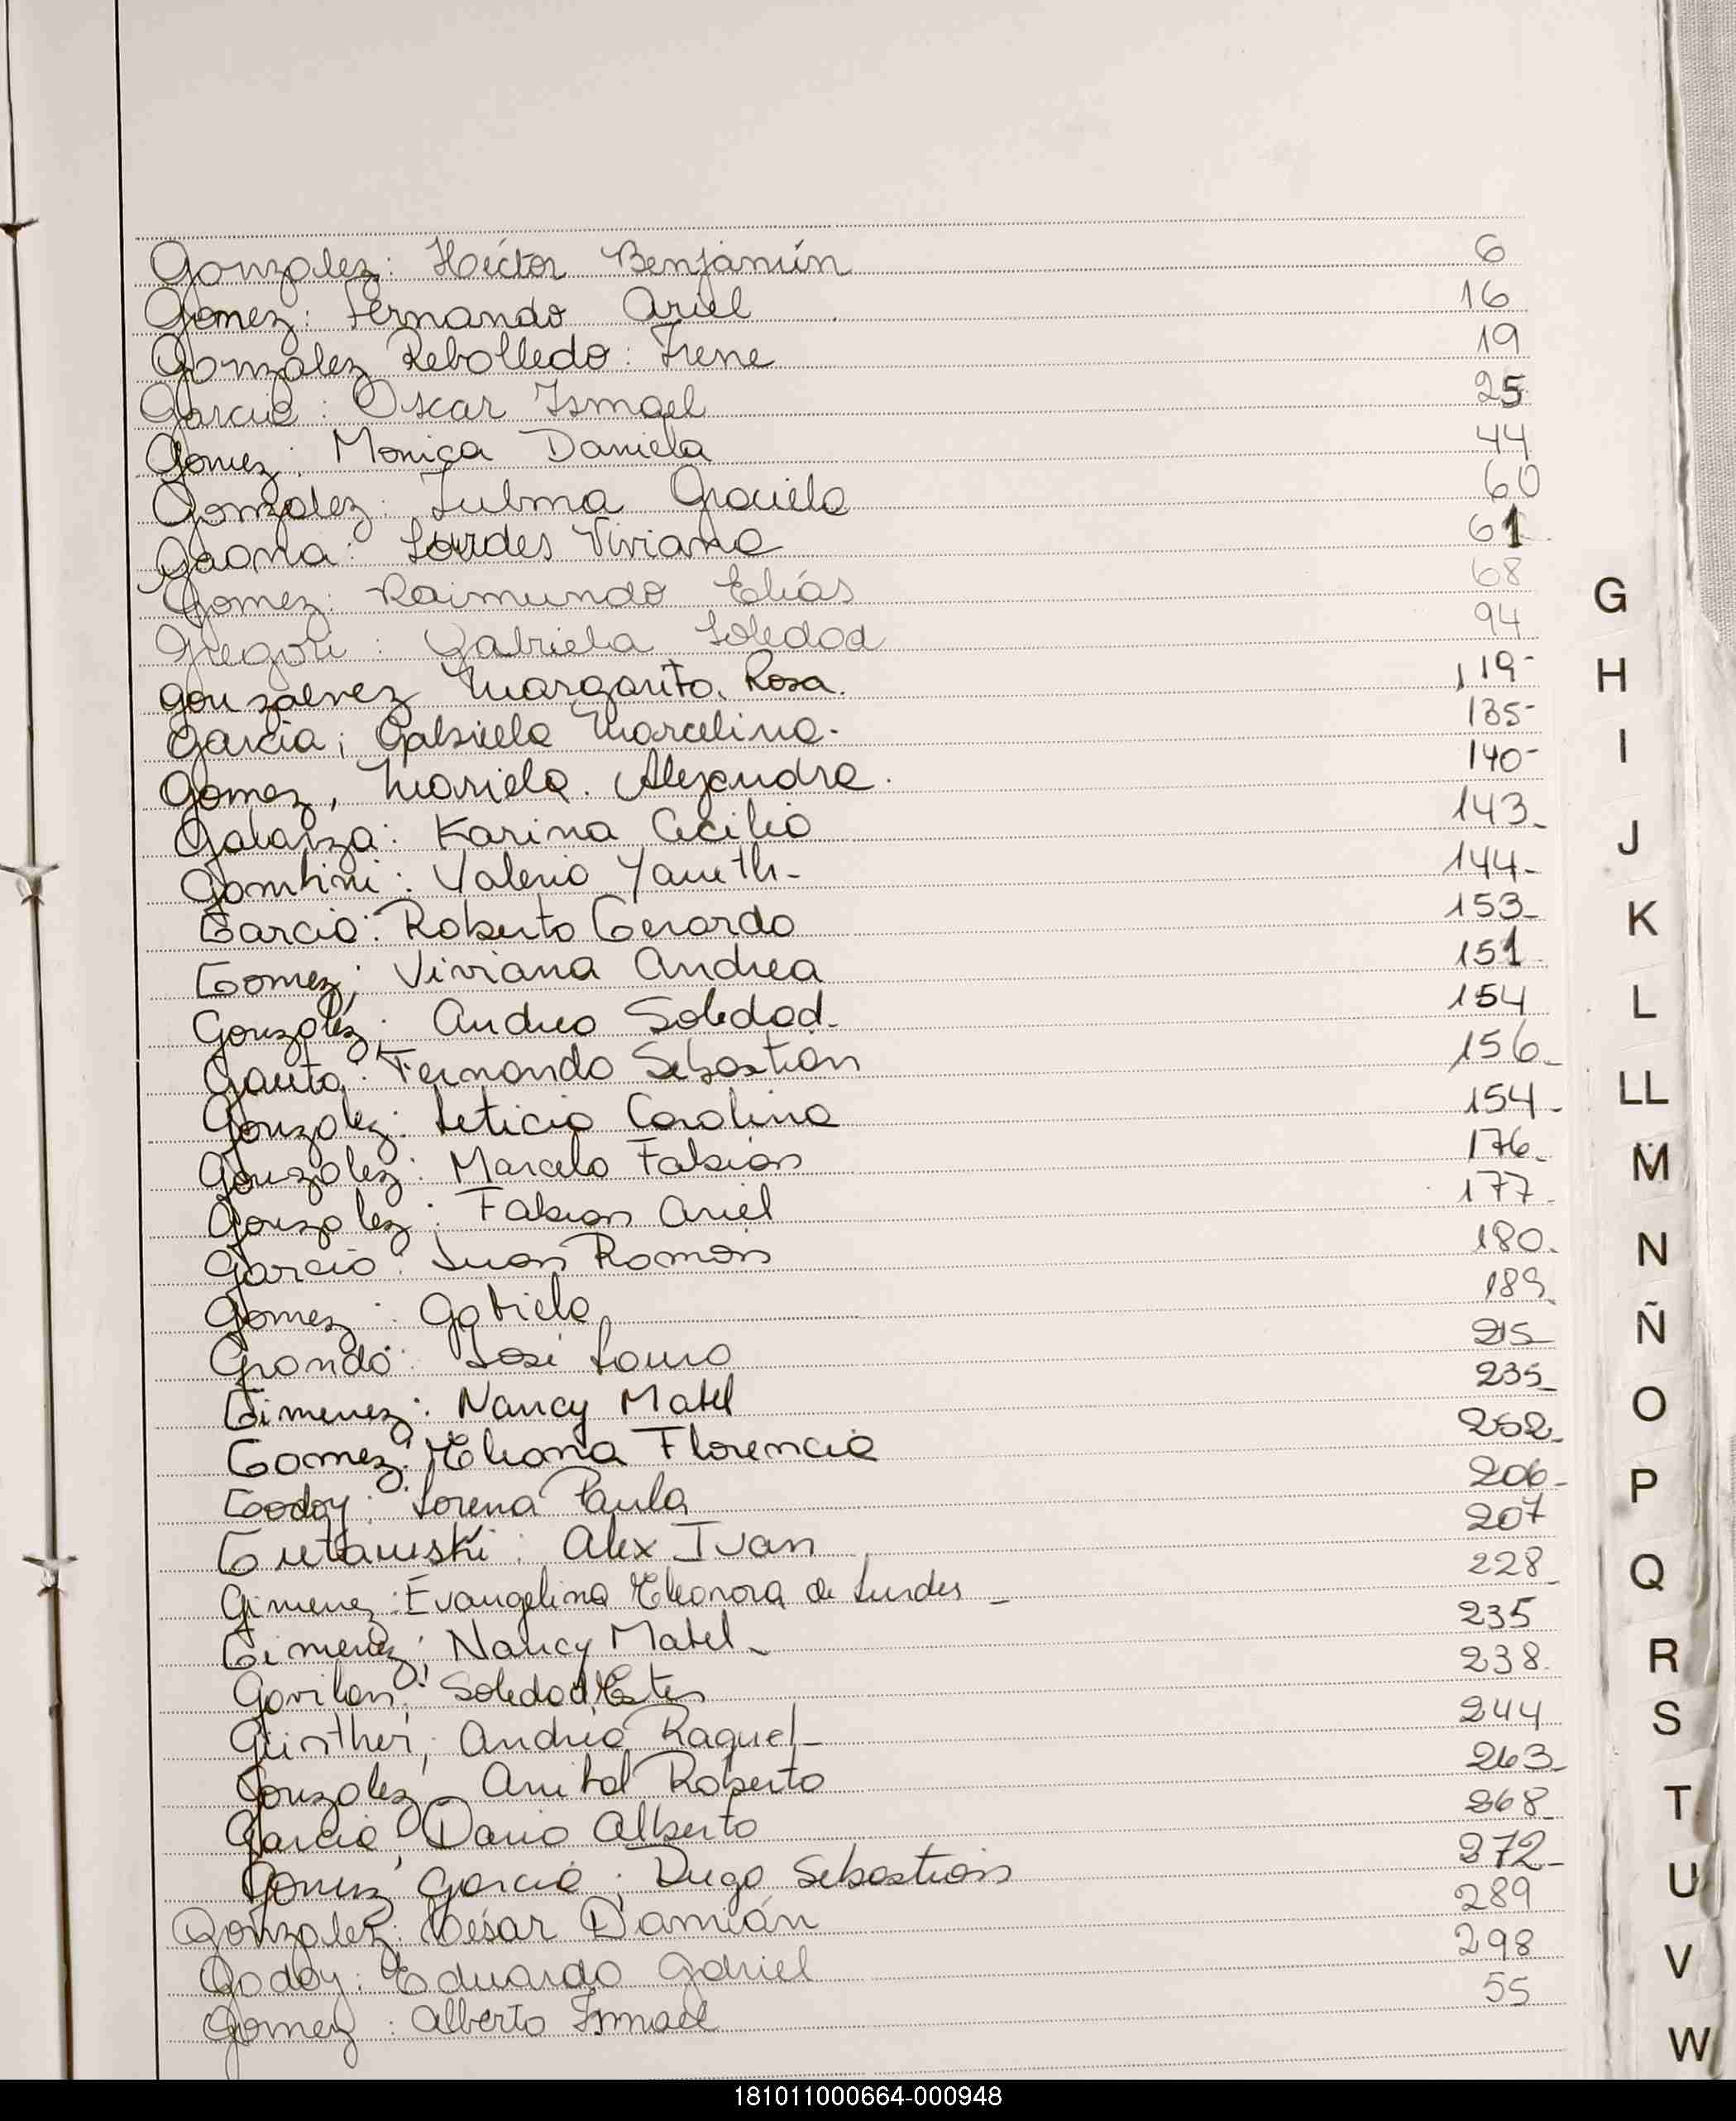 Gonzalez: Héctor Benjamín 6
Gomez: Fernando Ariel 16
Gonzalez Rebolledo: Irene 19
Garcia: Oscar Ismael 25
Gomez: Monica Daniela 44
Gonzalez: Zulma Graciela 60
Gaona: Lourdes Viviana 61
Gomez: Raimundo Elías 68
Gregori: Gabriela Soledad 94
Gonzalvez Margarita. Rosa. 119-
Garcia; Gabriela Marcelina. 135-
Gomez, Mariela. Alejandra. 140-
Galarza: Karina Cecilia 143-
Gombini: Valeria Yaneth- 144-
Garcia: Roberto Gerardo 153-
Gomez: Viviana Andrea 151-
Gonzalez: Andrea Soledad- 154
Gauto: Fernando Sebastian 156-
Gonzalez: Leticia Carolina 154-
Gonzalez: Marcelo Fabian 176-
Gonzalez: Fabian Ariel 177-
Garcia: Juan Ramón 180-
Gomez: Gabriela 189-
Grondo: José Lauro 215-
Gimenez: Nancy Mabel 235-
Gomez: Eliana Florencia 252-
Godoy: Lorena Paula 206-
Alex Ivan 207
Gimenez: Evangelina Eleonora de Lurdes - 228-
Gimenez: Nancy Mabel- 235
Gavilan: Soledad Ester 238-
Günther; Andrea Raquel- 244
Gonzalez Anibal Roberto 263-
Garcia Dario Alberto 268-
Gomez Garcia; Diego Sebastian 272-
Gonzalez: César Damián 289
Godoy: Eduardo Gabriel 298
Gomez: Alberto Ismael 55
G
H
I
J
K
L
LL
M
N
Ñ
O
P
Q
R
S
T
U
V
W
181011000664-000948